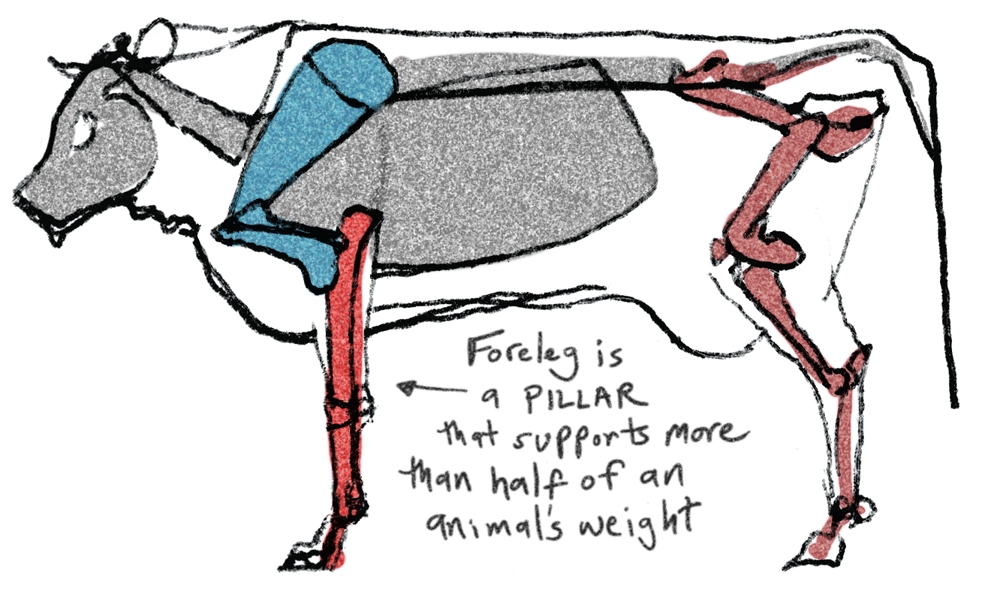 Foreleg is
a PILLAR
that supports more
than half of an
animal's weight